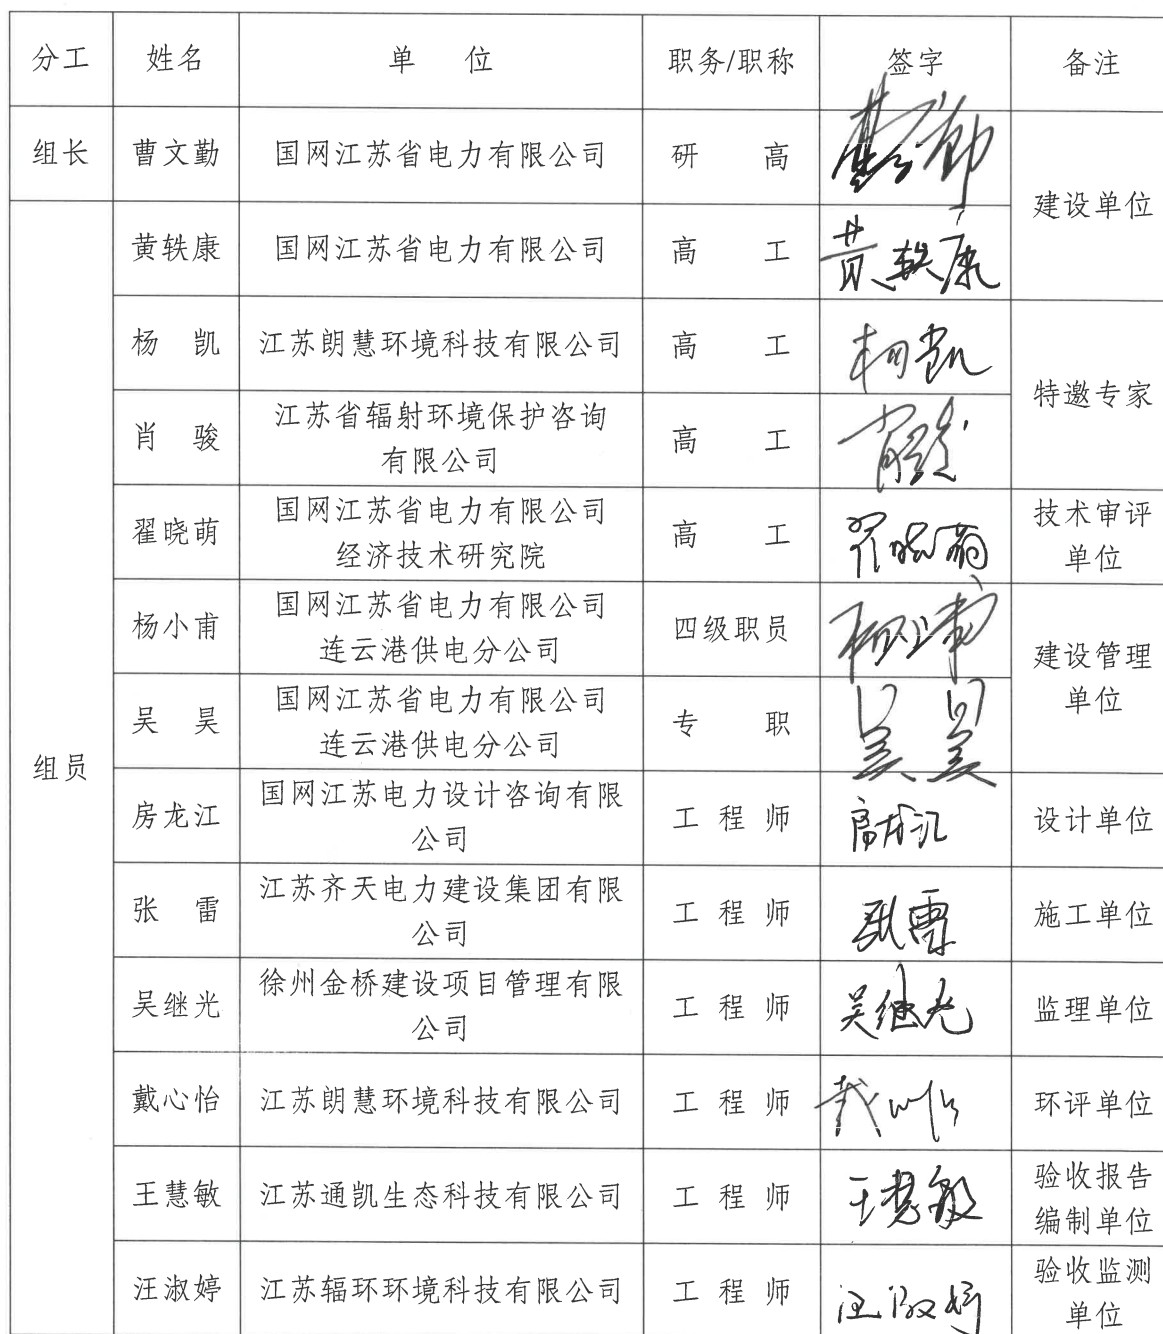 分工 姓名 单 位 职务/职称 签字 备注
组长 曹文勤 国网江苏省电力有限公司 研 高 曹文勤
建设单位
黄轶康 国网江苏省电力有限公司 高 工 黄轶康
杨 凯 江苏朗慧环境科技有限公司 高 工 杨凯
特邀专家
肖 骏 江苏省辐射环境保护咨询
有限公司 高 工 肖骏
翟晓萌 国网江苏省电力有限公司
经济技术研究院 高 工 翟晓萌 技术审评
单位
杨小甫 国网江苏省电力有限公司
连云港供电分公司 四级职员 杨小甫
建设管理
单位
吴 昊 国网江苏省电力有限公司
连云港供电分公司 专 职 吴昊
组员
房龙江 国网江苏电力设计咨询有限
公司 工 程 师 房龙江 设计单位
张 雷 江苏齐天电力建设集团有限
公司 工 程 师 张雷 施工单位
吴继光 徐州金桥建设项目管理有限
公司 工 程 师 吴继光 监理单位
戴心怡 江苏朗慧环境科技有限公司 工 程 师 戴心怡 环评单位
王慧敏 江苏通凯生态科技有限公司 工 程 师 王慧敏 验收报告
编制单位
汪淑婷 江苏辐环环境科技有限公司 工 程 师 汪淑婷 验收监测
单位